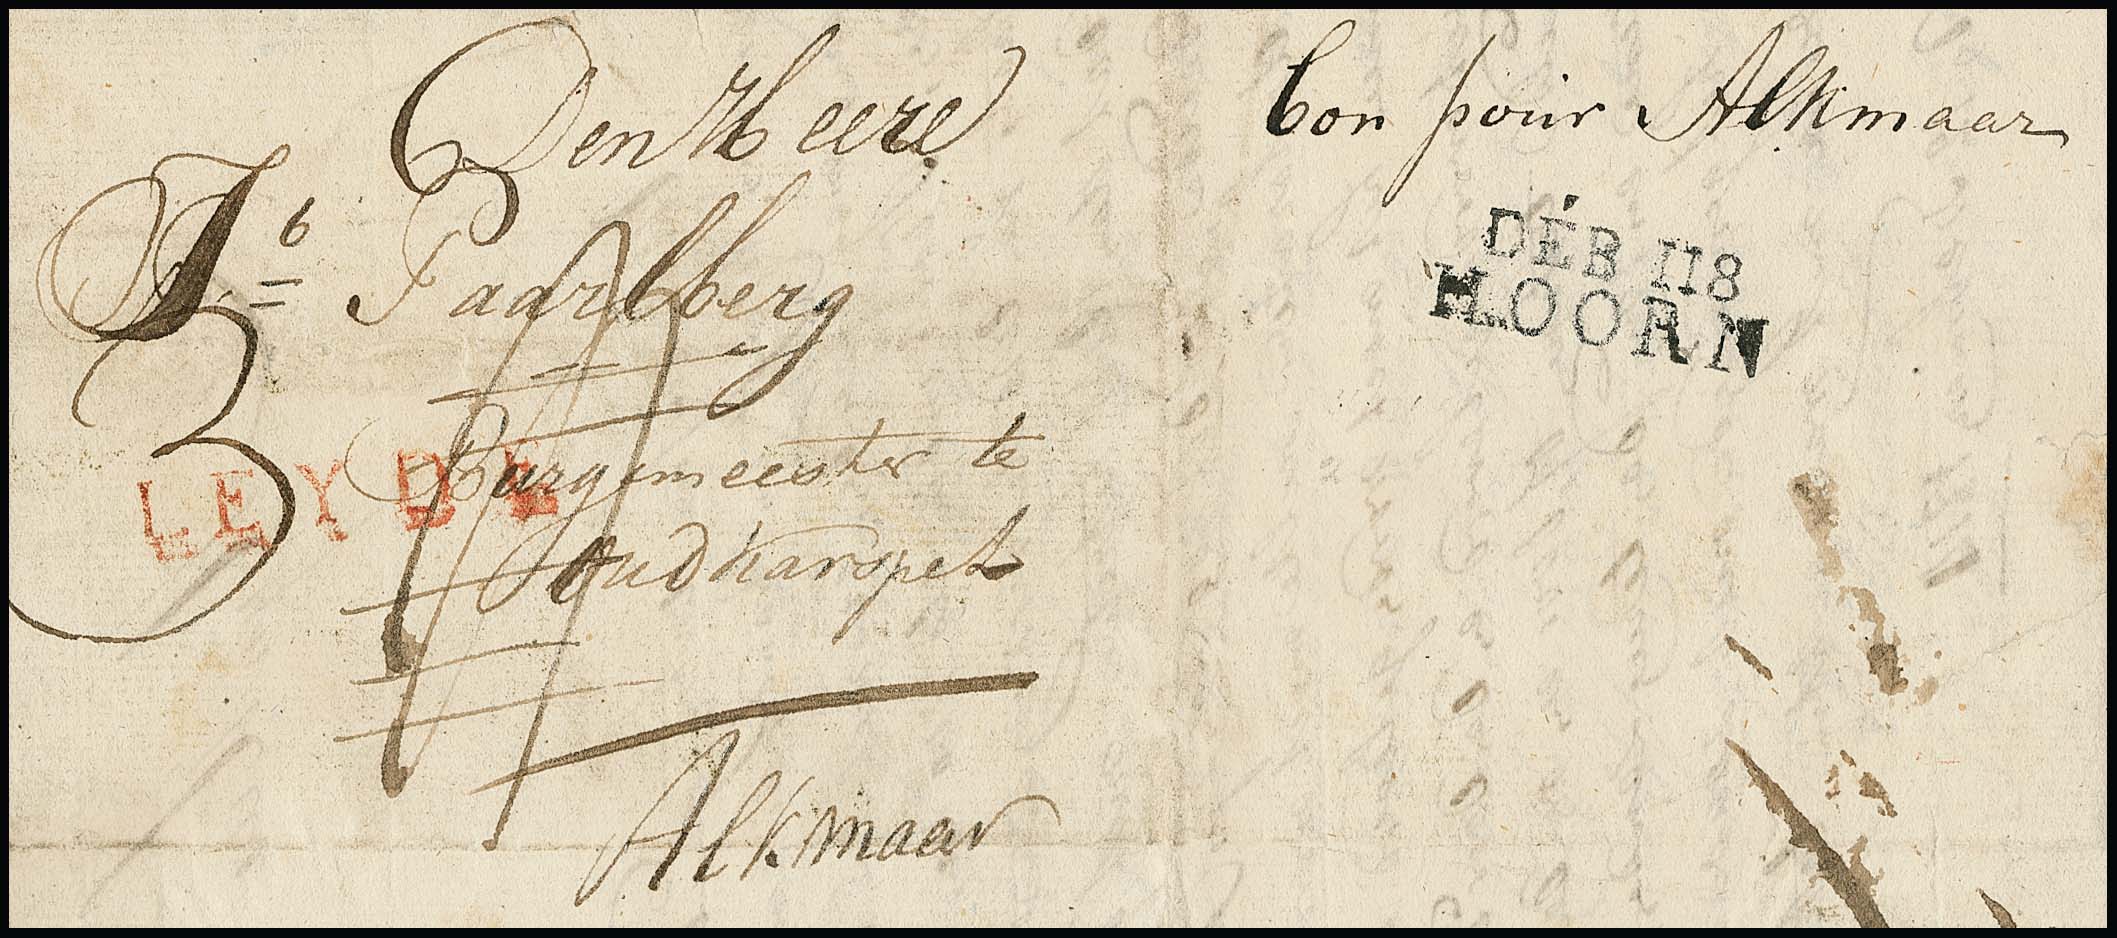 Den Heere
Jb Paarlberg
Burgemeester te
Oudkarspel
Alkmaar
3
LEYDE
bon pour Alkmaar
DÉB 118
HOORN